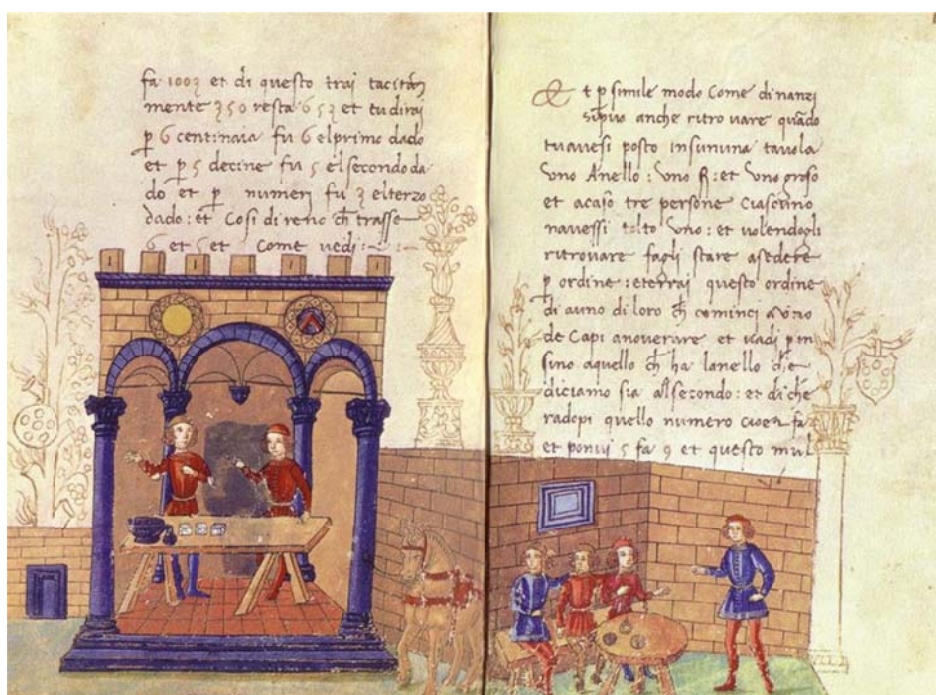 fa 1003 et di questo trai tacitan
mente 350 resta 653 et tu dirai
p 6 centinaia fu 6 el primo dado
et p 5 decine fu 5 el secondo da
do et p numeri fu 3 el terzo
dado: et Cosi direno ch trasse
6 et 5 et Come vedi
Et p simile modo Come dinanzi
si puo anche ritrovare quado
tu avesi posto in su nuna tavola
uno Anello: uno et uno groso
et a tre persone Ciascuno
navessi tolto uno: et volendogli
ritrovare fagli stare a sedere
p ordine: et questo ordine
di a uno di loro ch cominci
de Capi anoverare et vadi p in
sino a quello ch ha lanello che
diciamo sia al secondo: et di che
radopi quello numero fa
et ponvi 5 fa 9 et questo mul